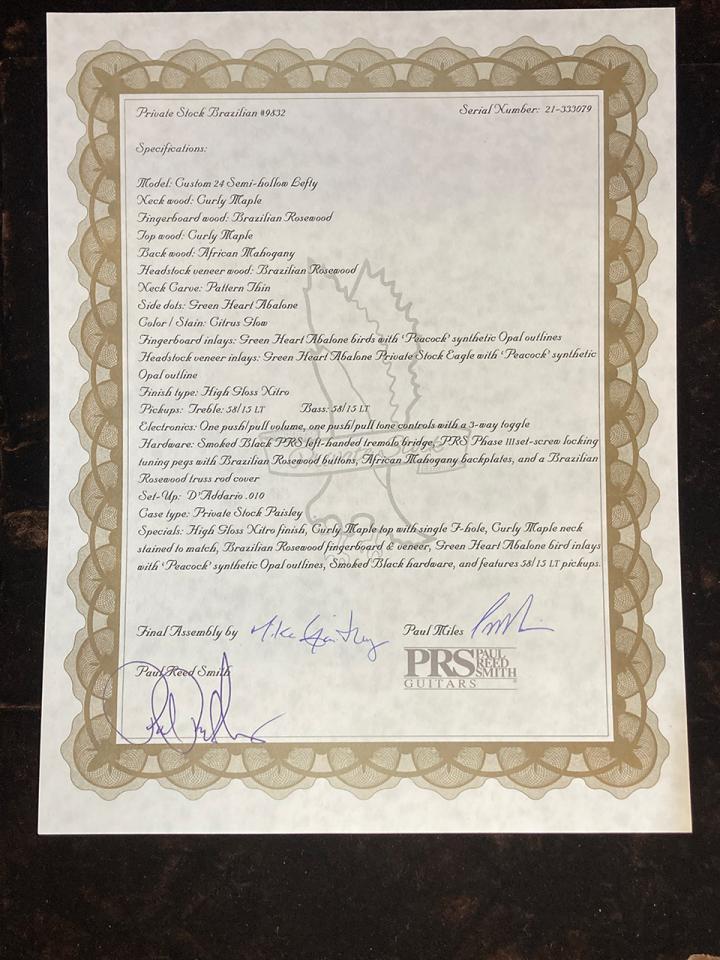 Private Stock Brazilian #9832 Serial Number: 21-333079
Specifications:
Model: Custom 24 Semi-hollow Lefty
Neck wood: Curly Maple
Fingerboard wood: Brazilian Rosewood
Top wood: Curly Maple
Back wood: African Mahogany
Headstock veneer wood: Brazilian Rosewood
Neck Carve: Pattern Thin
Side dots: Green Heart Abalone
Color / Stain: Citrus Glow
Fingerboard inlays: Green Heart Abalone birds with 'Peacock' synthetic Opal outlines
Headstock veneer inlays: Green Heart Abalone Private Stock Eagle with 'Peacock' synthetic
Opal outline
Finish type: High Gloss Nitro
Pickups: Treble: 58/15 LT Bass: 58/15 LT
Electronics: One push/pull volume, one push/pull tone controls with a 3-way toggle
Hardware: Smoked Black PRS left-handed tremolo bridge, PRS Phase III set-screw locking
tuning pegs with Brazilian Rosewood buttons, African Mahogany backplates, and a Brazilian
Rosewood truss rod cover
Set-Up: D'Addario .010
Case type: Private Stock Paisley
Specials: High Gloss Nitro finish, Curly Maple top with single F-hole, Curly Maple neck
stained to match, Brazilian Rosewood fingerboard & veneer, Green Heart Abalone bird inlays
with 'Peacock' synthetic Opal outlines, Smoked Black hardware, and features 58/15 LT pickups.
Final Assembly by Paul Miles
Paul Reed Smith
PRS PAUL REED SMITH
GUITARS